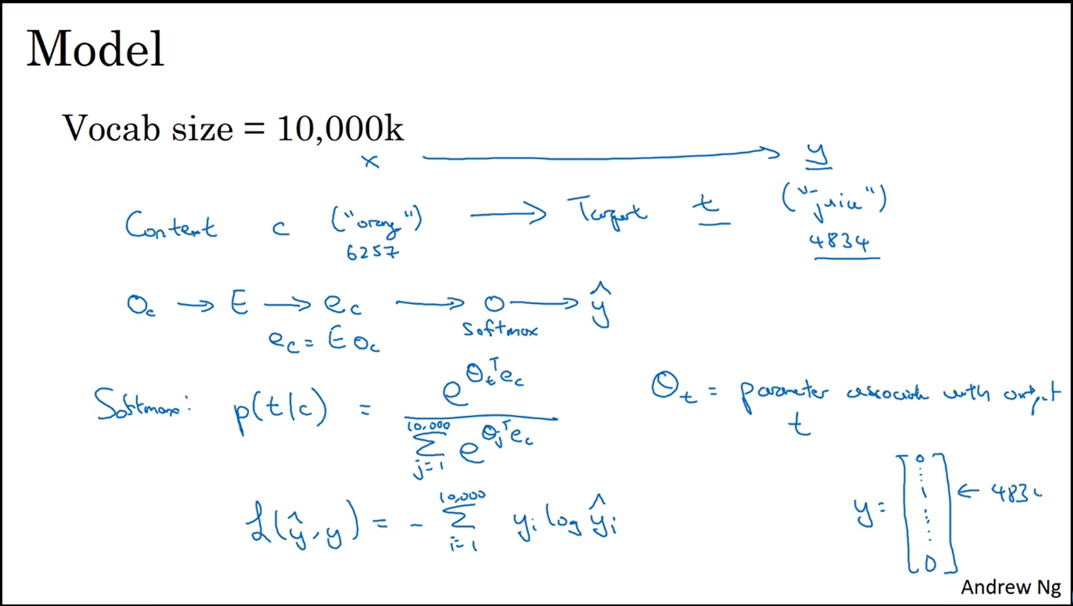 Model
Vocab size = 10,000k
x → y
Content c ("orange") → Target t ("juice")
6257 4834
O_c → E → e_c → o → ŷ
softmax
e_c = E O_c
Softmax: p(t|c) = e^{θ_t^T e_c} / Σ_{j=1}^{10,000} e^{θ_j^T e_c} θ_t = parameter associated with output
t
ℒ(ŷ, y) = - Σ_{i=1}^{10,000} y_i log ŷ_i
y = [0 ⋮ 1 ⋮ 0] ← 4834
Andrew Ng